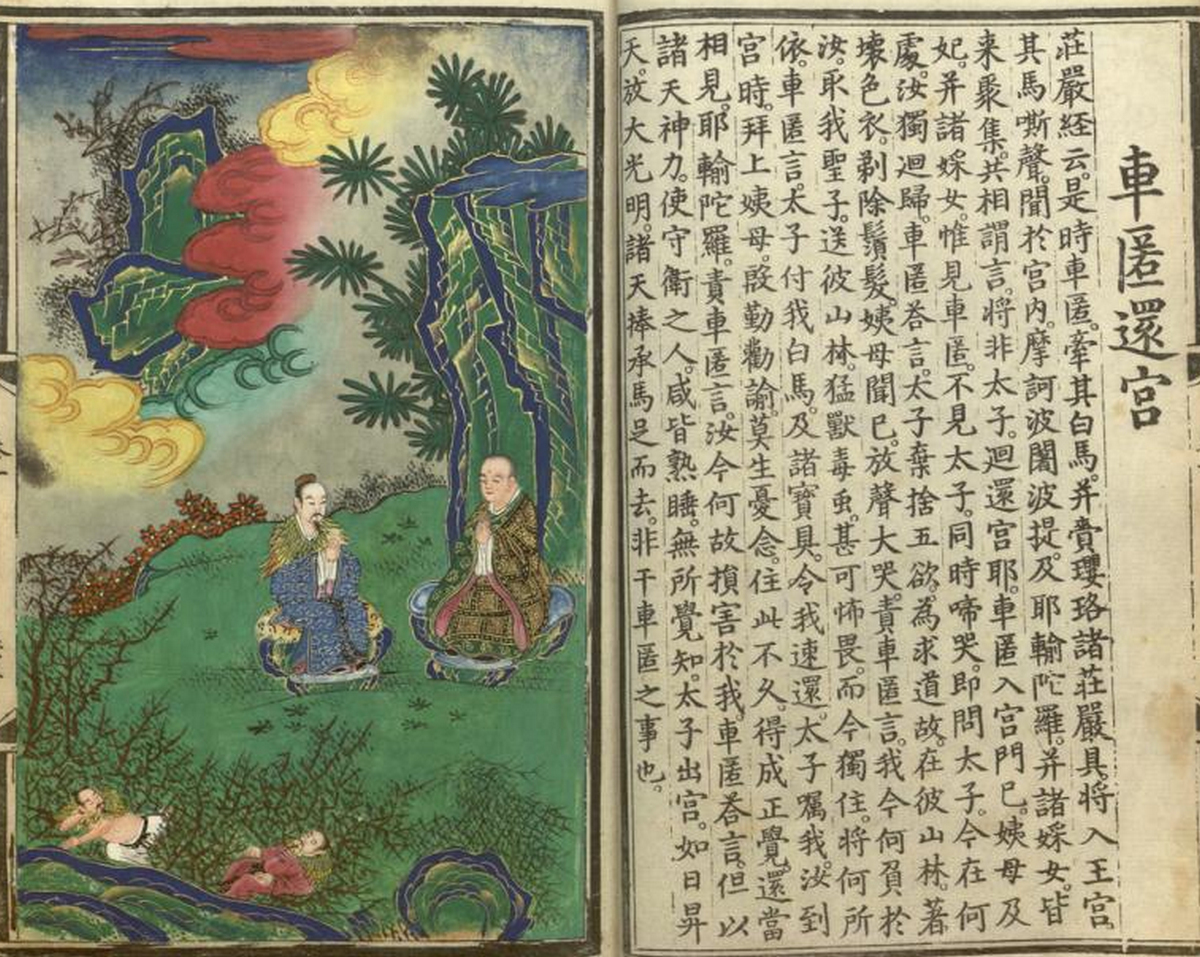 車匿還宮
莊嚴經云。是時車匿。牽其白馬。并賫瓔珞諸莊嚴具。將入王宮。
其馬嘶聲。聞於宮內。摩訶波闍波提。及耶輸陀羅。并諸婇女。皆
来聚集。共相謂言。將非太子。迴還宮耶。車匿入宮門已。姨母及
妃。并諸婇女。惟見車匿。不見太子。同時啼哭。即問太子。今在何
處。汝獨迴歸。車匿荅言。太子棄捨五欲。為求道故。在彼山林。著
壞色衣。剃除鬚髮。姨母聞已。放聲大哭。責車匿言。我今何負於
汝。取我聖子。送彼山林。猛獸毒虫。甚可怖畏。而今獨住。將何所
依。車匿言。太子付我白馬。及諸寶具。令我速還。太子囑我。汝到
宮時。拜上姨母。慇勤勸諭。莫生憂念。住此不久。得成正覺。還當
相見。耶輸陀羅。責車匿言。汝今何故損害於我。車匿荅言。但以
諸天神力。使守衛之人。咸皆熟睡。無所覺知。太子出宮。如日昇
天。放大光明。諸天捧承馬足而去。非干車匿之事也。